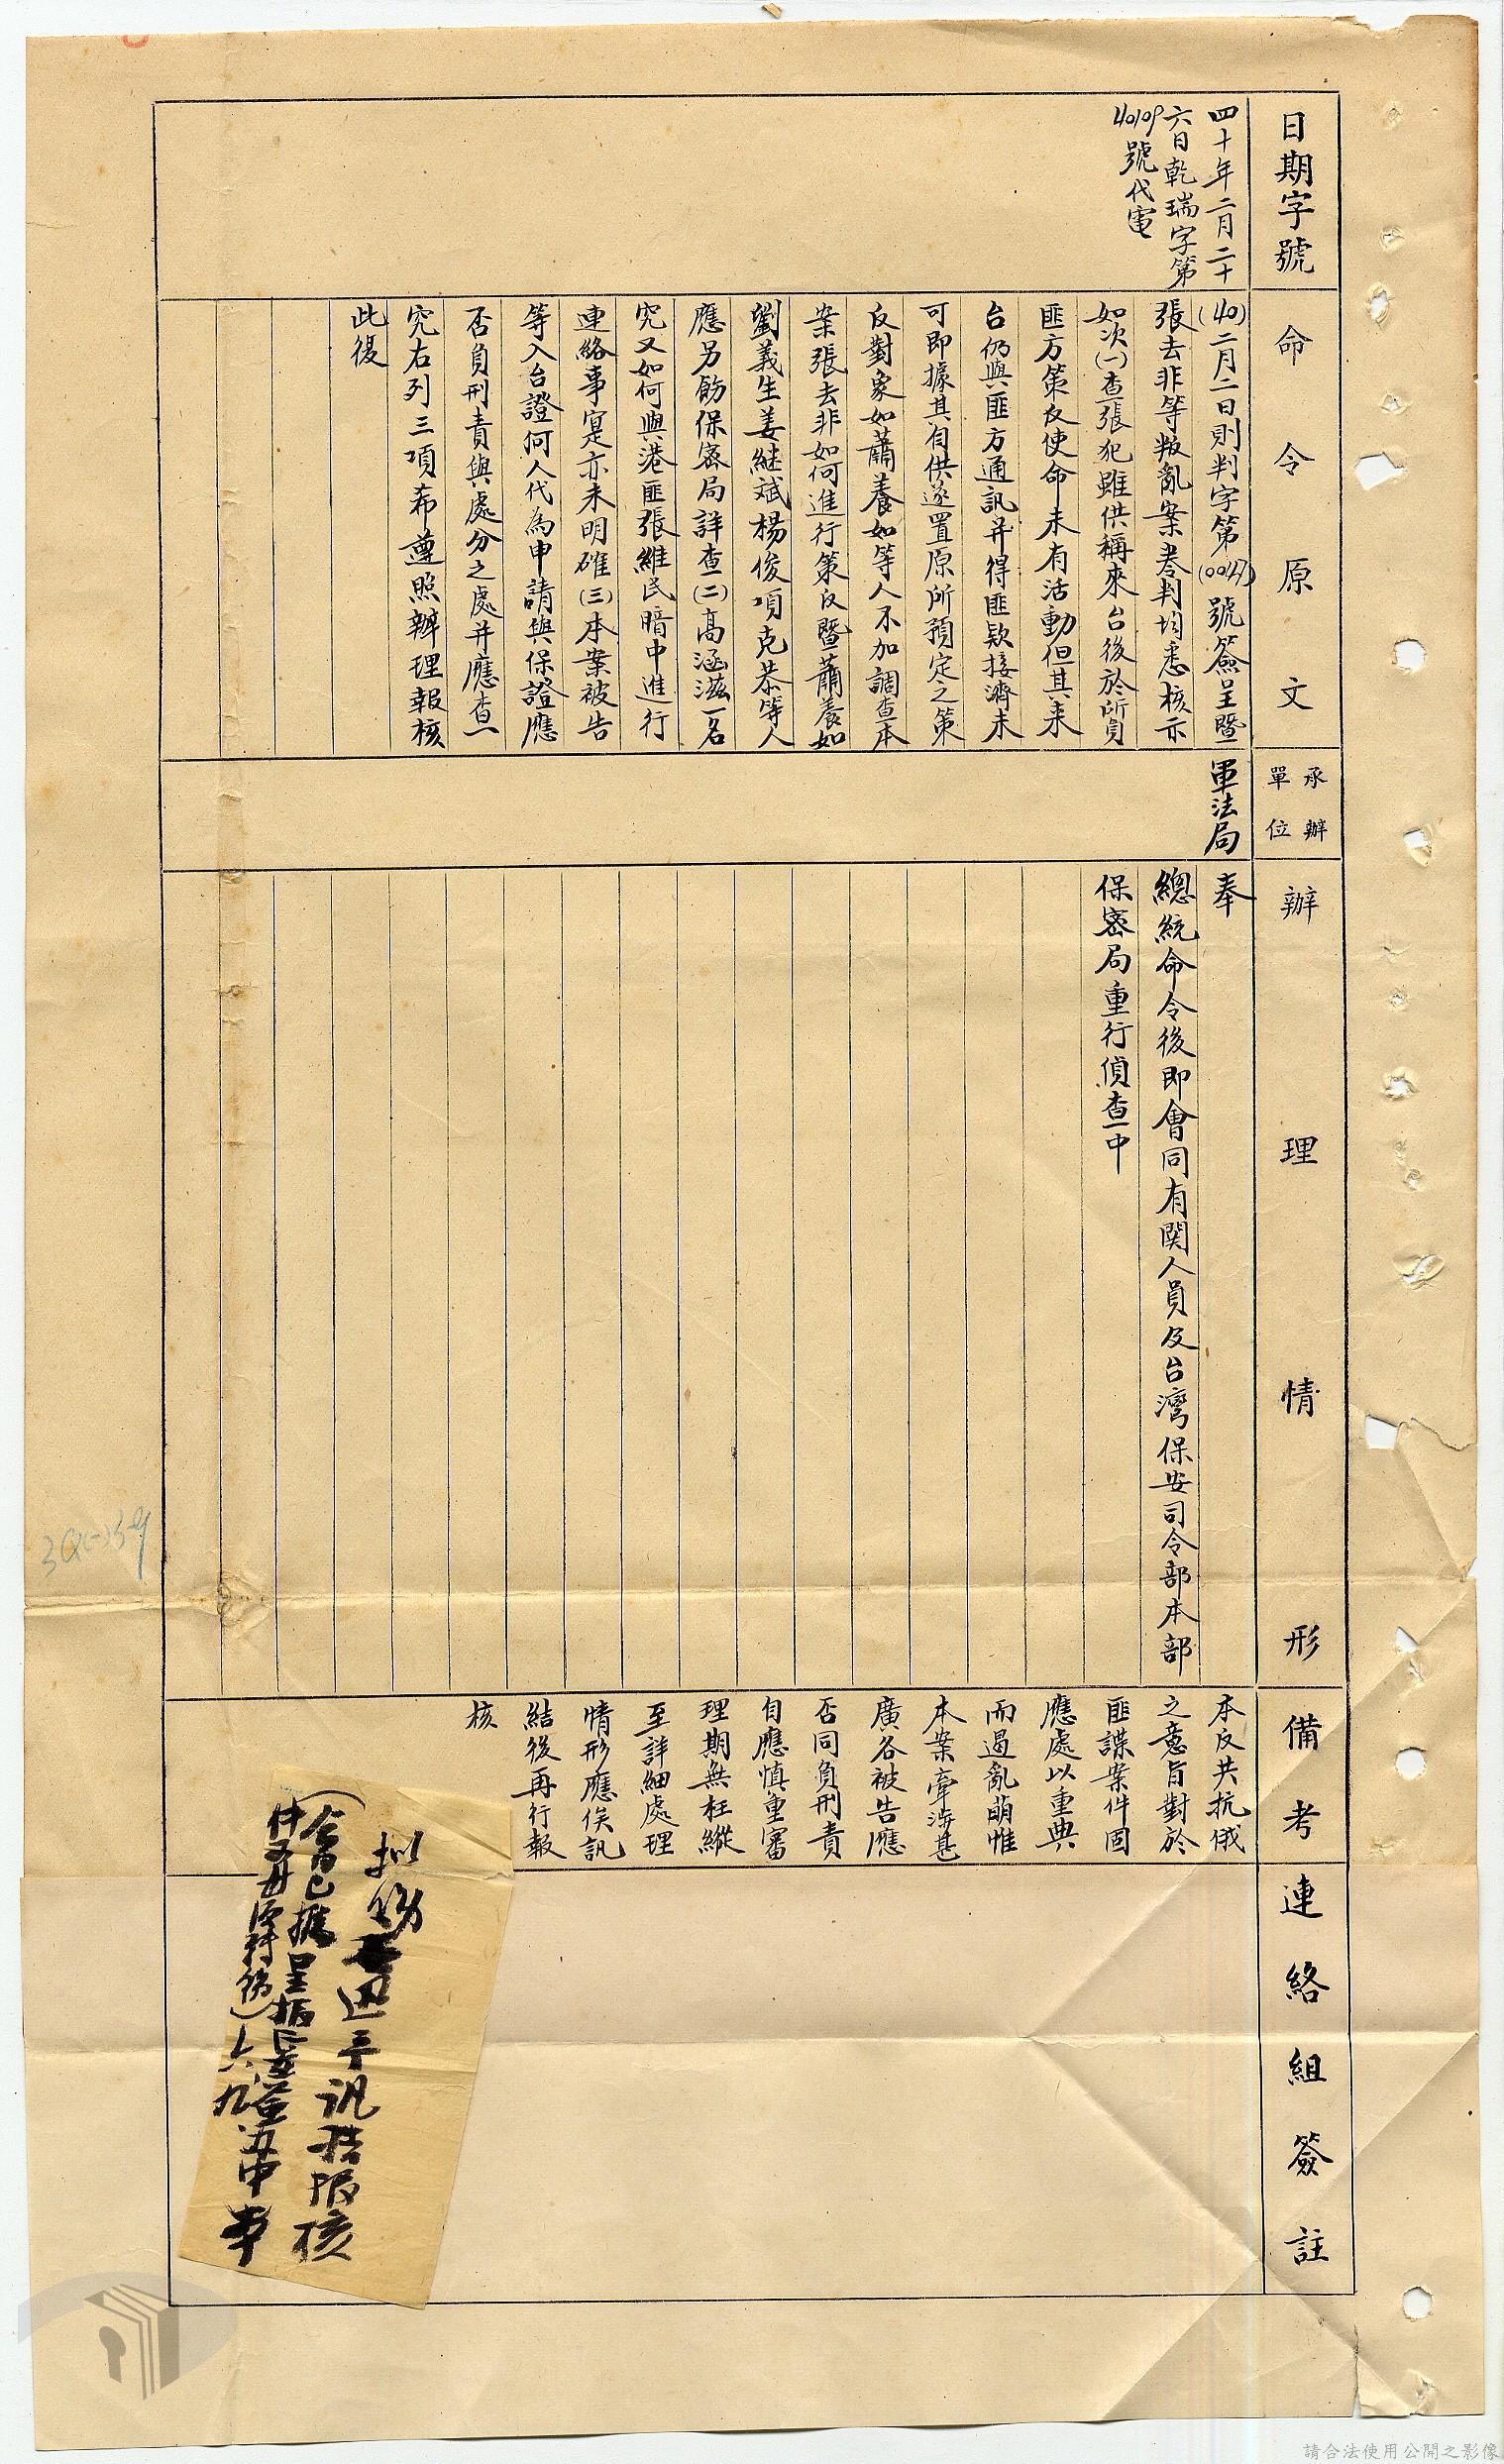 日期字號
四十年二月二十
六日乾瑞字第
40109
號代電
命令原文
(40)二月二日則判字第(0047)號簽呈暨
張去非等叛亂案卷判均悉核示
如次(一)查張犯雖供稱來台後於所負
匪方策反使命未有活動但其来
台仍與匪方通訊并得匪欵接濟未
可即據其自供遂置原所預定之策
反對象如蕭養如等人不加調查本
案張去非如何進行策反暨蕭養如
劉義生姜継斌楊俊項克恭等人
應另飭保密局詳查(二)高涵滋一名
究又如何與港匪張維民暗中進行
連絡事寔亦未明確(三)本案被告
等入台證何人代為申請與保證應
否負刑責與處分之處并應查
究右列三項希遵照辦理報核
此復
承辦
單位
軍法局
辦理情形
奉
總統命令後即會同有関人員及台灣保安司令部本部
保密局重行偵查中
備考
本反共抗俄
之意旨對於
匪諜案件固
應處以重典
而遏亂萌惟
本案牽涉甚
廣各被告應
否同負刑責
自應慎重審
理期無枉縱
至詳細處理
情形應俟訊
結後再行報
核
連絡組簽註
拟飭迅予訊結報核
六九
請合法使用公開之影像